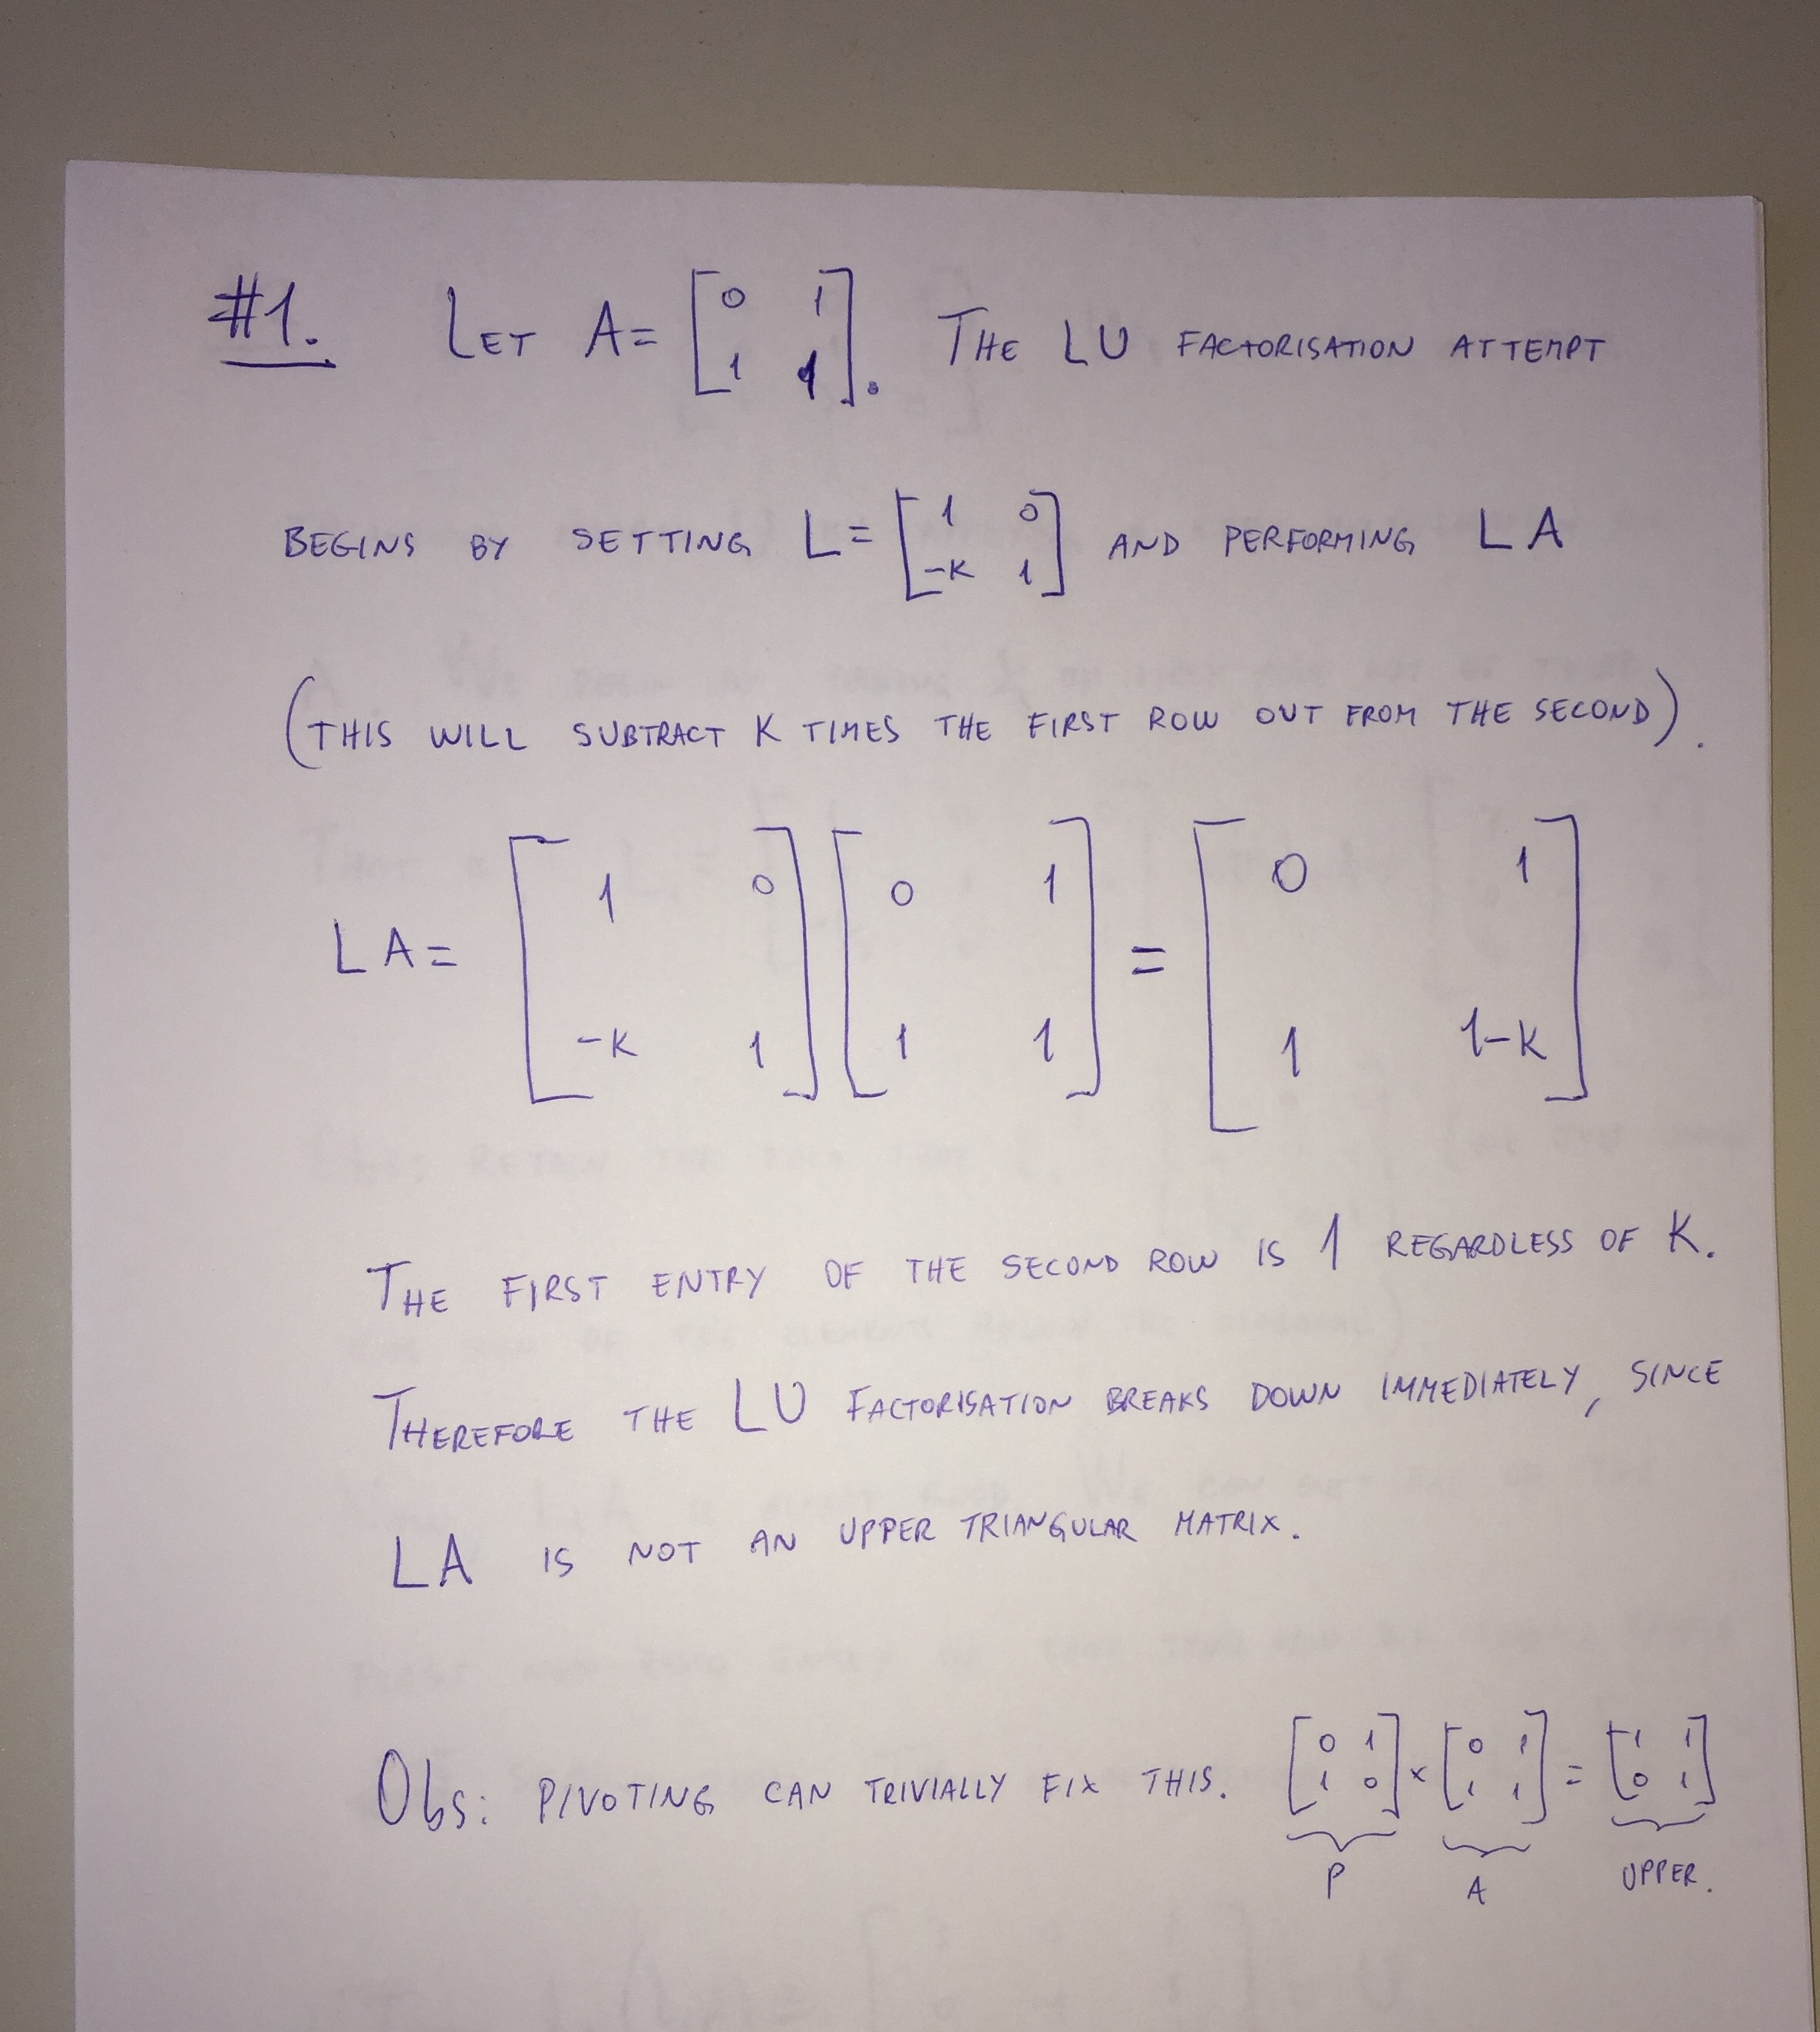 #1. LET A= [0 1; 1 1]. THE LU FACTORISATION ATTEMPT
BEGINS BY SETTING L= [1 0; -K 1] AND PERFORMING LA
(THIS WILL SUBTRACT K TIMES THE FIRST ROW OUT FROM THE SECOND).
LA= [1 0; -K 1] [0 1; 1 1] = [0 1; 1 1-K]
THE FIRST ENTRY OF THE SECOND ROW IS 1 REGARDLESS OF K.
THEREFORE THE LU FACTORISATION BREAKS DOWN IMMEDIATELY, SINCE
LA IS NOT AN UPPER TRIANGULAR MATRIX.
Obs: PIVOTING CAN TRIVIALLY FIX THIS. [0 1; 1 0] × [0 1; 1 1] = [1 1; 0 1]
P A UPPER.